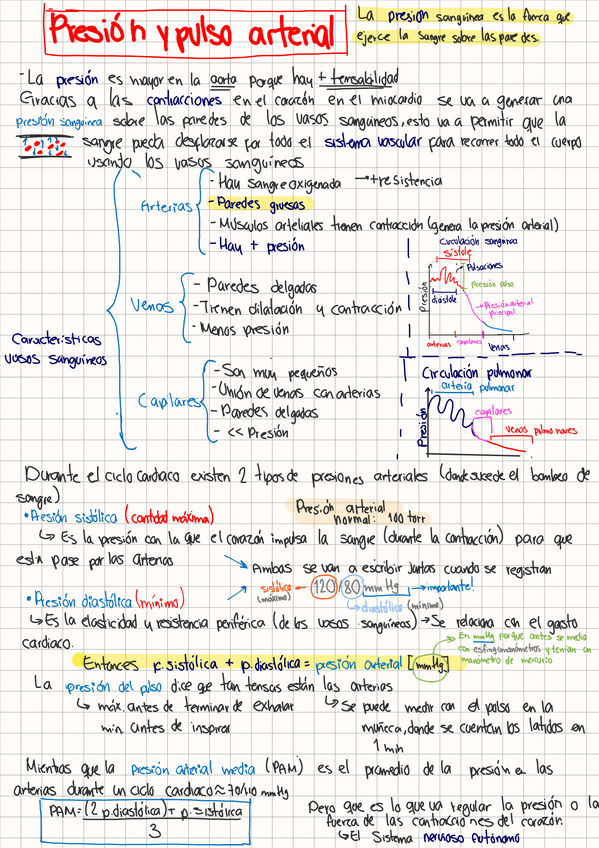 Presión y pulso arterial
La presión sanguinea es la fuerza que
ejerce la sangre sobre las paredes.
-La presión es mayor en la aorta porque hay + tensabilidad
Giracias a las contracciones en el corazón en el miocardio se va a generar una
presión sanguinea sobre las paredes de los vasos sanguineos, esto va a permitir que la
sangre pueda desplazarse por todo el sistema vascular para recorrer todo el cuerpo
usando los vasos sanguineos
Caracteristicas
vasos sanguineos
Arterias
- Hay sangre oxigenada → + resistencia
- Paredes gruesas
- Músculos arteliales tienen contracción (genera la presión arterial)
- Hay + presión
Venas
- Paredes delgadas
- Tienen dilatación y contracción
- Menos presión
Capilares
- Son muy pequeños
- Unión de venas con arterias
- Paredes delgadas
- << Presión
Circulación sanguinea
sistole
Pulsaciones
Presión pulso
diástole
Presión arterial
principal
Presión
arterias capilares venas
Circulación pulmonar
arteria pulmonar
capilares
venas pulmonares
Presión
Durante el ciclo cardiaco existen 2 tipos de presiones arteriales (donde sucede el bombeo de
sangre)
•Presión sistólica (cantidad máxima)
Presión arterial
normal: 100 torr
↳ Es la presión con la que el corazón impulsa la sangre (durante la contracción) para que
esta pase por las arterias
Ambas se van a escribir juntas cuando se registran
sistólica
(máximo)
← 120/80 mmHg → importante!
↳ diastólica (mínimo)
• Presión diastólica (mínimo)
↳ Es la elasticidad y resistencia periférica (de los vasos sanguineos) → Se relaciona con el gasto
cardiaco.
Entonces p.sistólica + p.diastólica = presión arterial [mmHg]
En mmHg porque antes se media
con esfingomanómetros y tenian un
manómetro de mercurio
La presión del pulso dice que tan tensas están las arterias
↳ máx. antes de terminar de exhalar
min. antes de inspirar
↳ Se puede medir con el pulso en la
muñeca, donde se cuentan los latidos en
1 min
Mientras que la presión arterial media (PAM) es el promedio de la presión en las
arterias durante un ciclo cardiaco ≈ 70/110 mmHg
PAM= (2 p.diastólica) + p.sistólica
3
Pero que es lo que va regular la presión o la
fuerza de las contracciones del corazón.
↳ El Sistema nervioso Autónomo